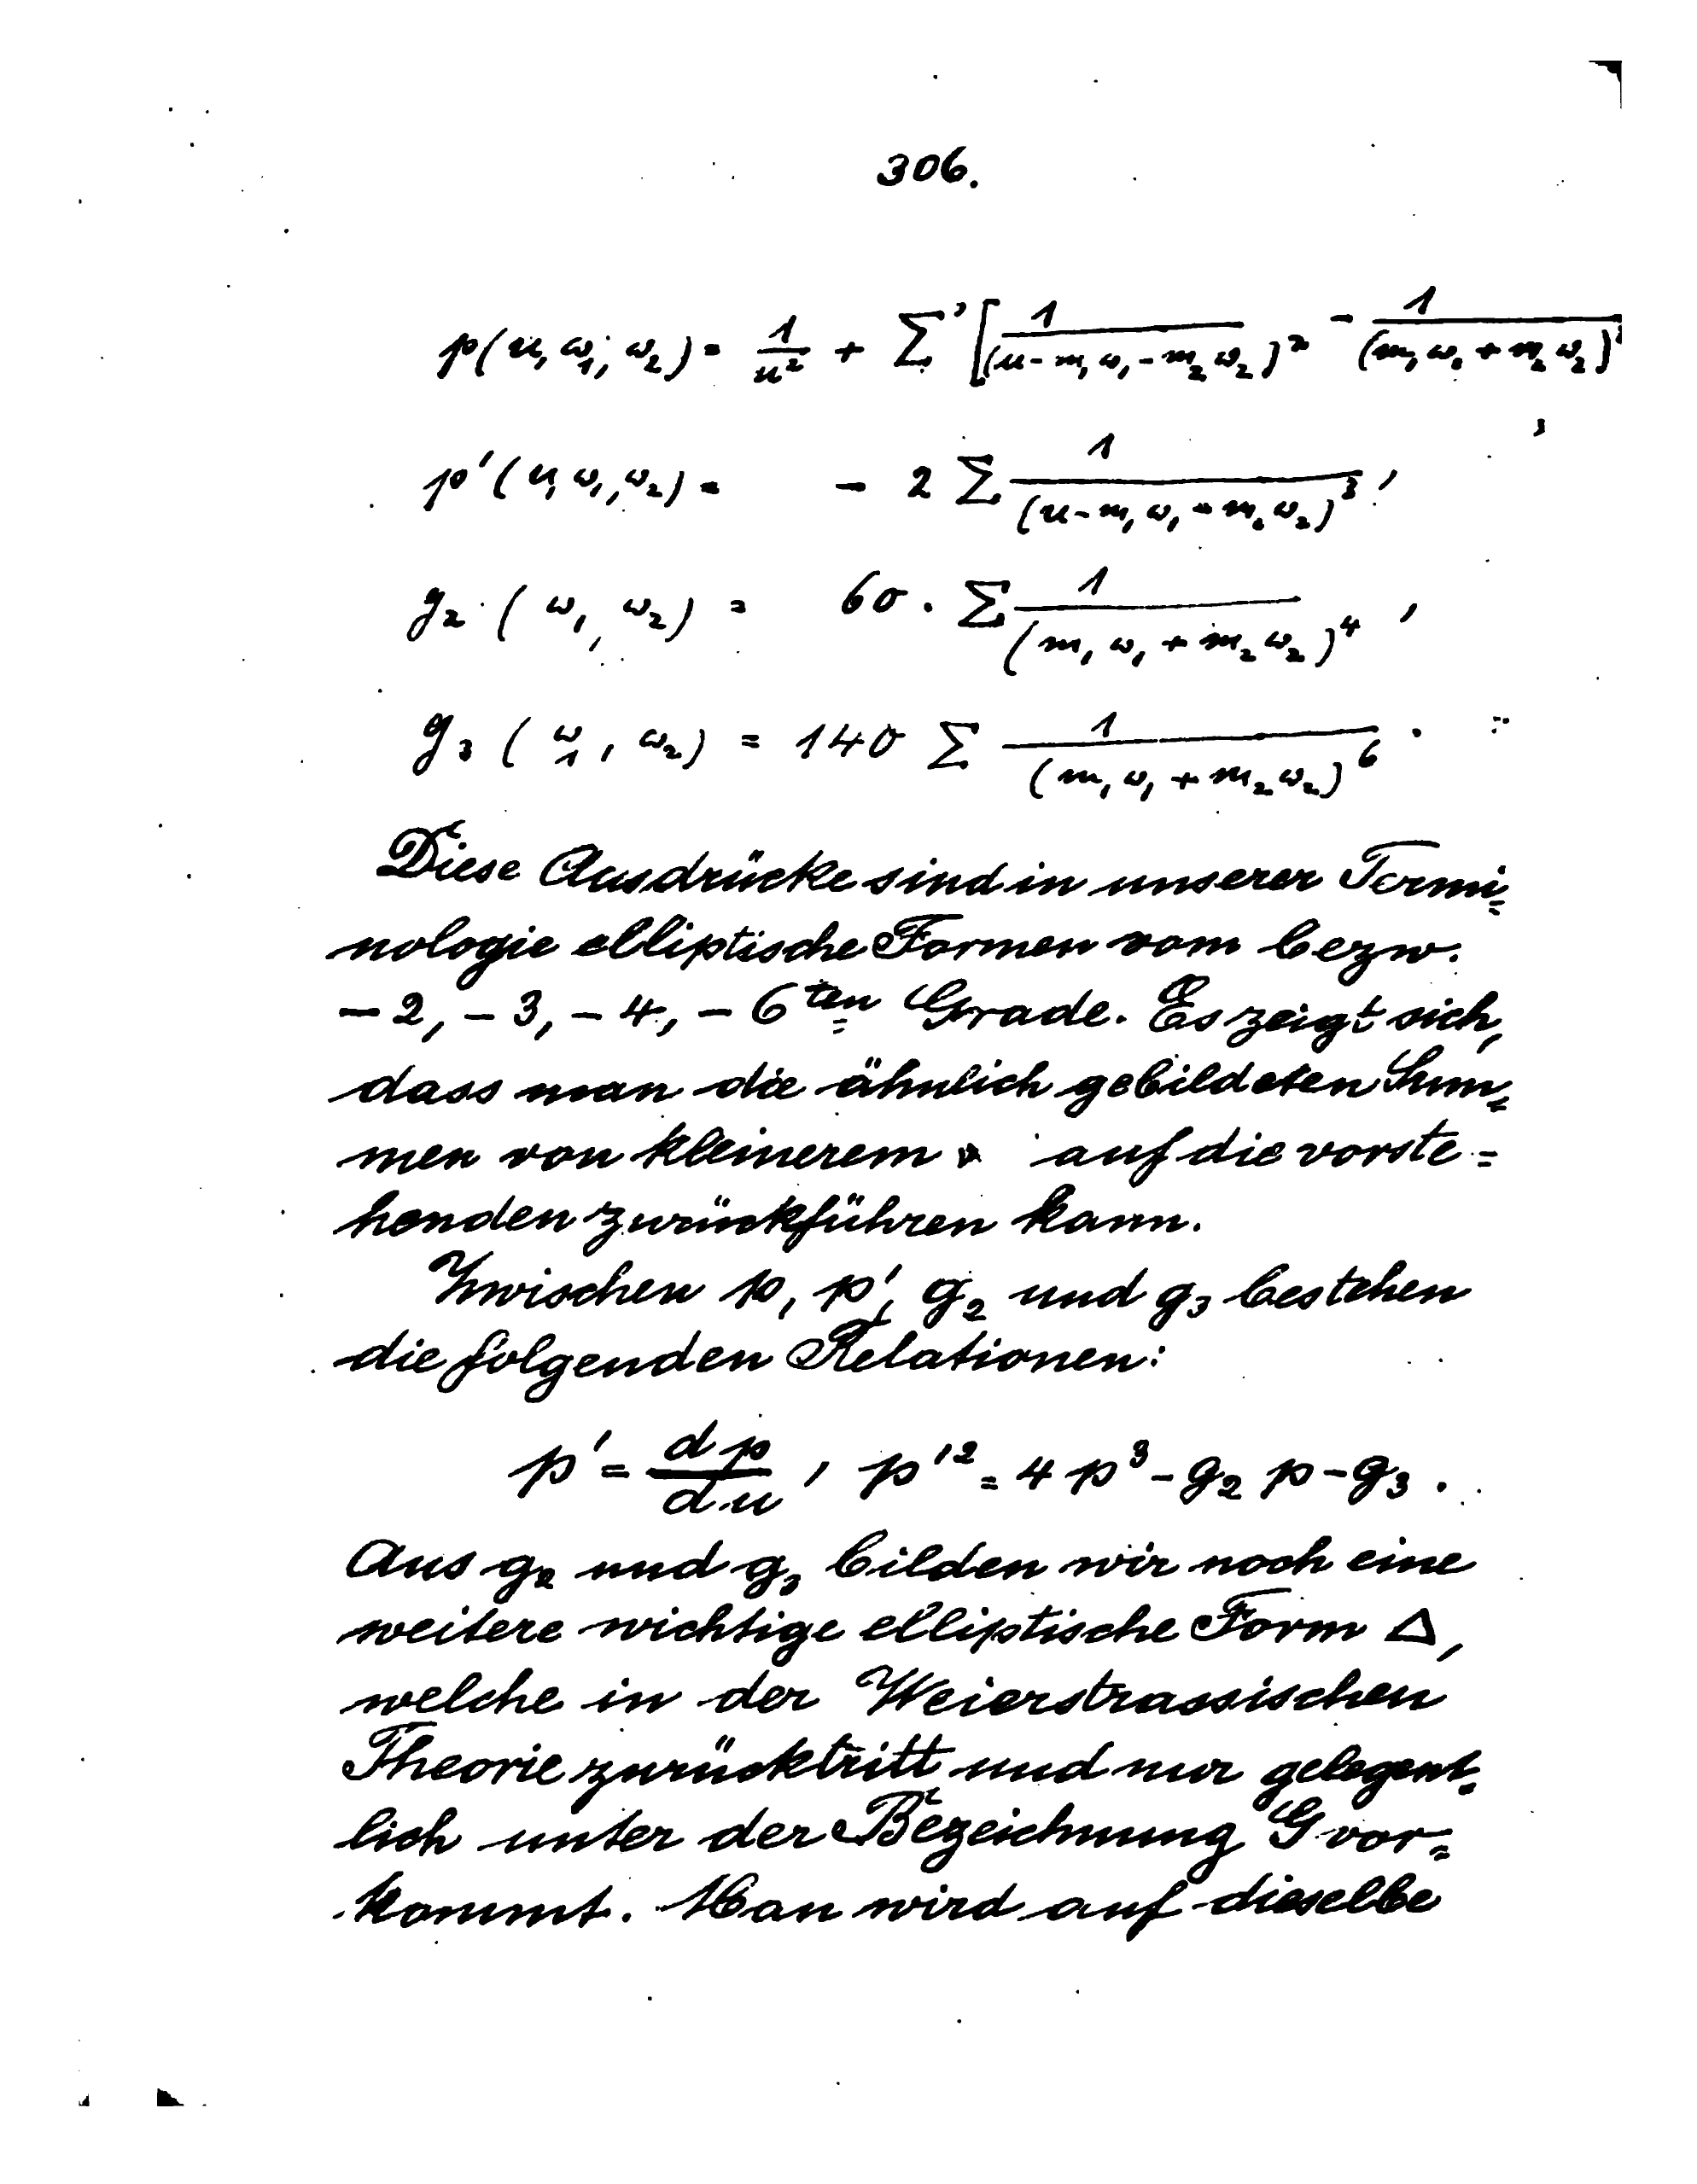 306.
p(u, ω₁, ω₂) = 1/u² + Σ' [1/(u - m₁ω₁ - m₂ω₂)² - 1/(m₁ω₁ + m₂ω₂)
p'(u, ω₁, ω₂) = - 2 Σ 1/(u - m₁ω₁ - m₂ω₂)³ ,
g₂ (ω₁, ω₂) = 60 . Σ 1/(m₁ω₁ + m₂ω₂)⁴ ,
g₃ (ω₁, ω₂) = 140 Σ 1/(m₁ω₁ + m₂ω₂)⁶ .
Diese Ausdrücke sind in unserer Termi=
nologie elliptische Formen vom bezw.
- 2, - 3, - 4, - 6ten Grade. Es zeigt sich,
dass man die ähnlich gebildeten Sum=
men von kleinerem auf die vorste=
henden zurückführen kann.
Zwischen p, p', g₂ und g₃ bestehen
die folgenden Relationen:
p' = dp/du , p'² = 4 p³ - g₂ p - g₃ .
Aus g₂ und g₃ bilden wir noch eine
weitere wichtige elliptische Form Δ,
welche in der Weierstrassischen
Theorie zurücktritt und nur gelegent=
lich unter der Bezeichnung G vor=
kommt. Man wird auf dieselbe